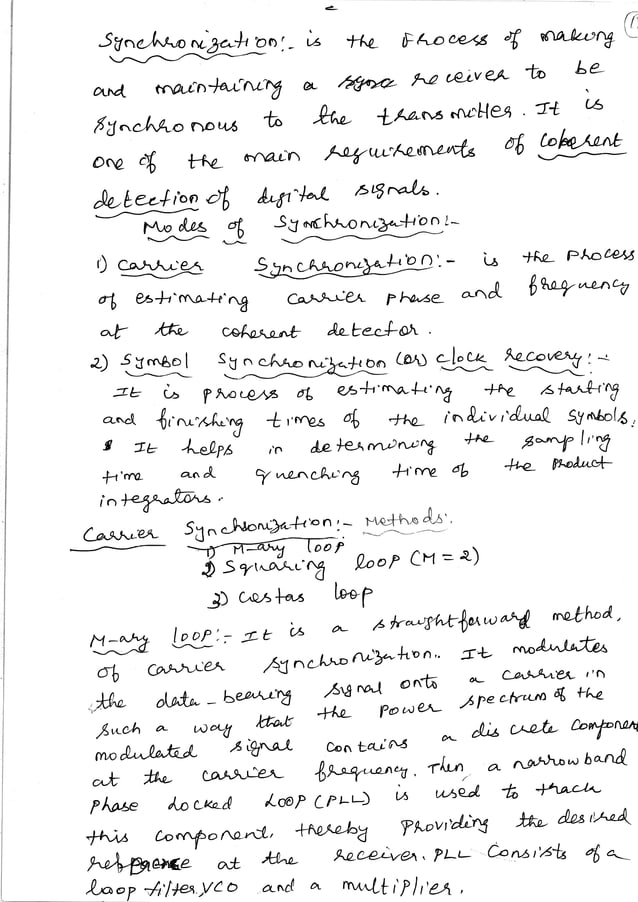 Synchronization:- is the Process of making
and maintaining a receiver to be
synchronous to the transmitter. It is
one of the main requirements of coherent
detection of digital signals.
Modes of Synchronization:-
1) Carrier Synchronization:- is the Process
of estimating carrier phase and frequency
at the coherent detector.
2) Symbol Synchronization (or) clock recovery:-
It is process of estimating the starting
and finishing times of the individual symbols.
It helps in determining the sampling
time and quenching time of the Product
integrators.
Carrier Synchronization:- Methods:
1) M-ary loop
2) Squaring loop (M=2)
3) Costas loop
M-ary loop:- It is a straightforward method,
of carrier synchronization. It modulates
the data-bearing signal onto a carrier in
such a way that the power spectrum of the
modulated signal contains a discrete component
at the carrier frequency. Then a narrowband
Phase Locked LOOP (PLL) is used to track
this component, thereby Providing the desired
at the receiver. PLL Consists of a
loop filter, VCO and a multiplier.